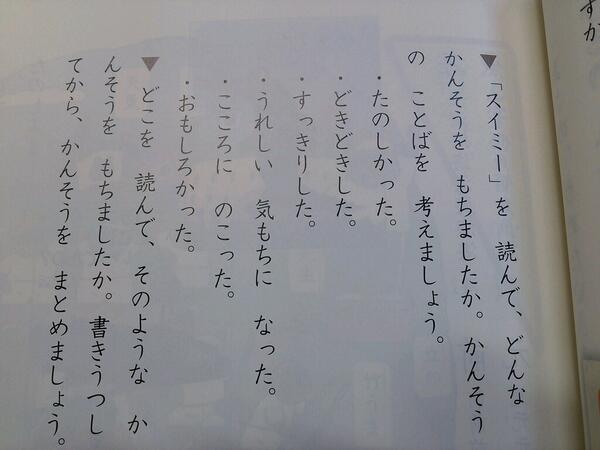 ▼「スイミー」を 読んで、どんな
かんそうを もちましたか。かんそう
の ことばを 考えましょう。
・たのしかった。
・どきどきした。
・すっきりした。
・うれしい 気もちに なった。
・こころに のこった。
・おもしろかった。
▼ どこを 読んで、そのような か
んそうを もちましたか。書きうつし
てから、かんそうを まとめましょう。